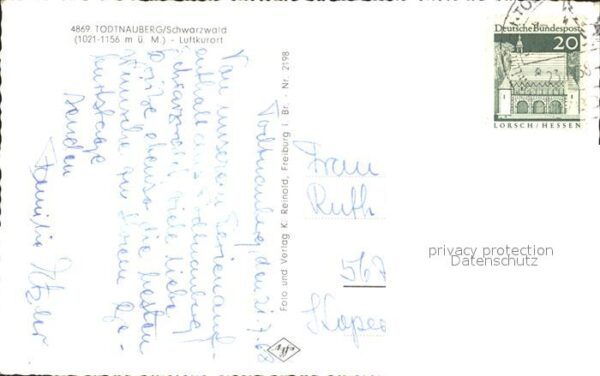 4869 TODTNAUBERG/Schwarzwald
(1021-1156 m ü. M.) - Luftkurort
Todtnauberg, den 21.7.68
Von unserem Ferienauf-
enthalt aus Todtnauberg
Schwarzwald viele liebe
Grüße ebenso die besten
Wünsche zu Ihrem Ge-
burtstage
senden
Familie
Foto und Verlag K. Reinold, Freiburg i Br. - Nr. 2198
Frau
Ruth
567
Deutsche Bundespost
20
LORSCH/HESSEN
privacy protection
Datenschutz